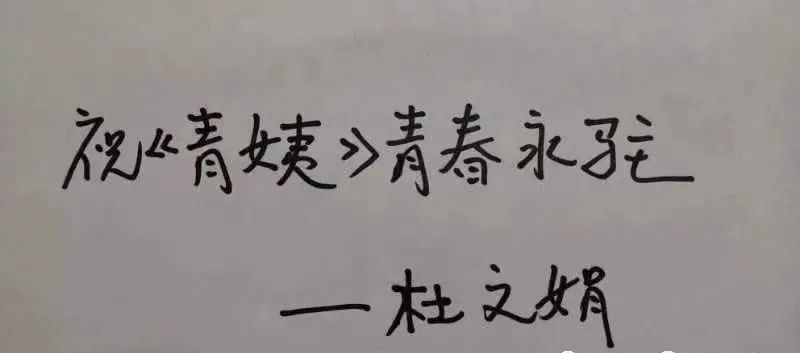 祝《青姨》青春永驻
——杜文娟